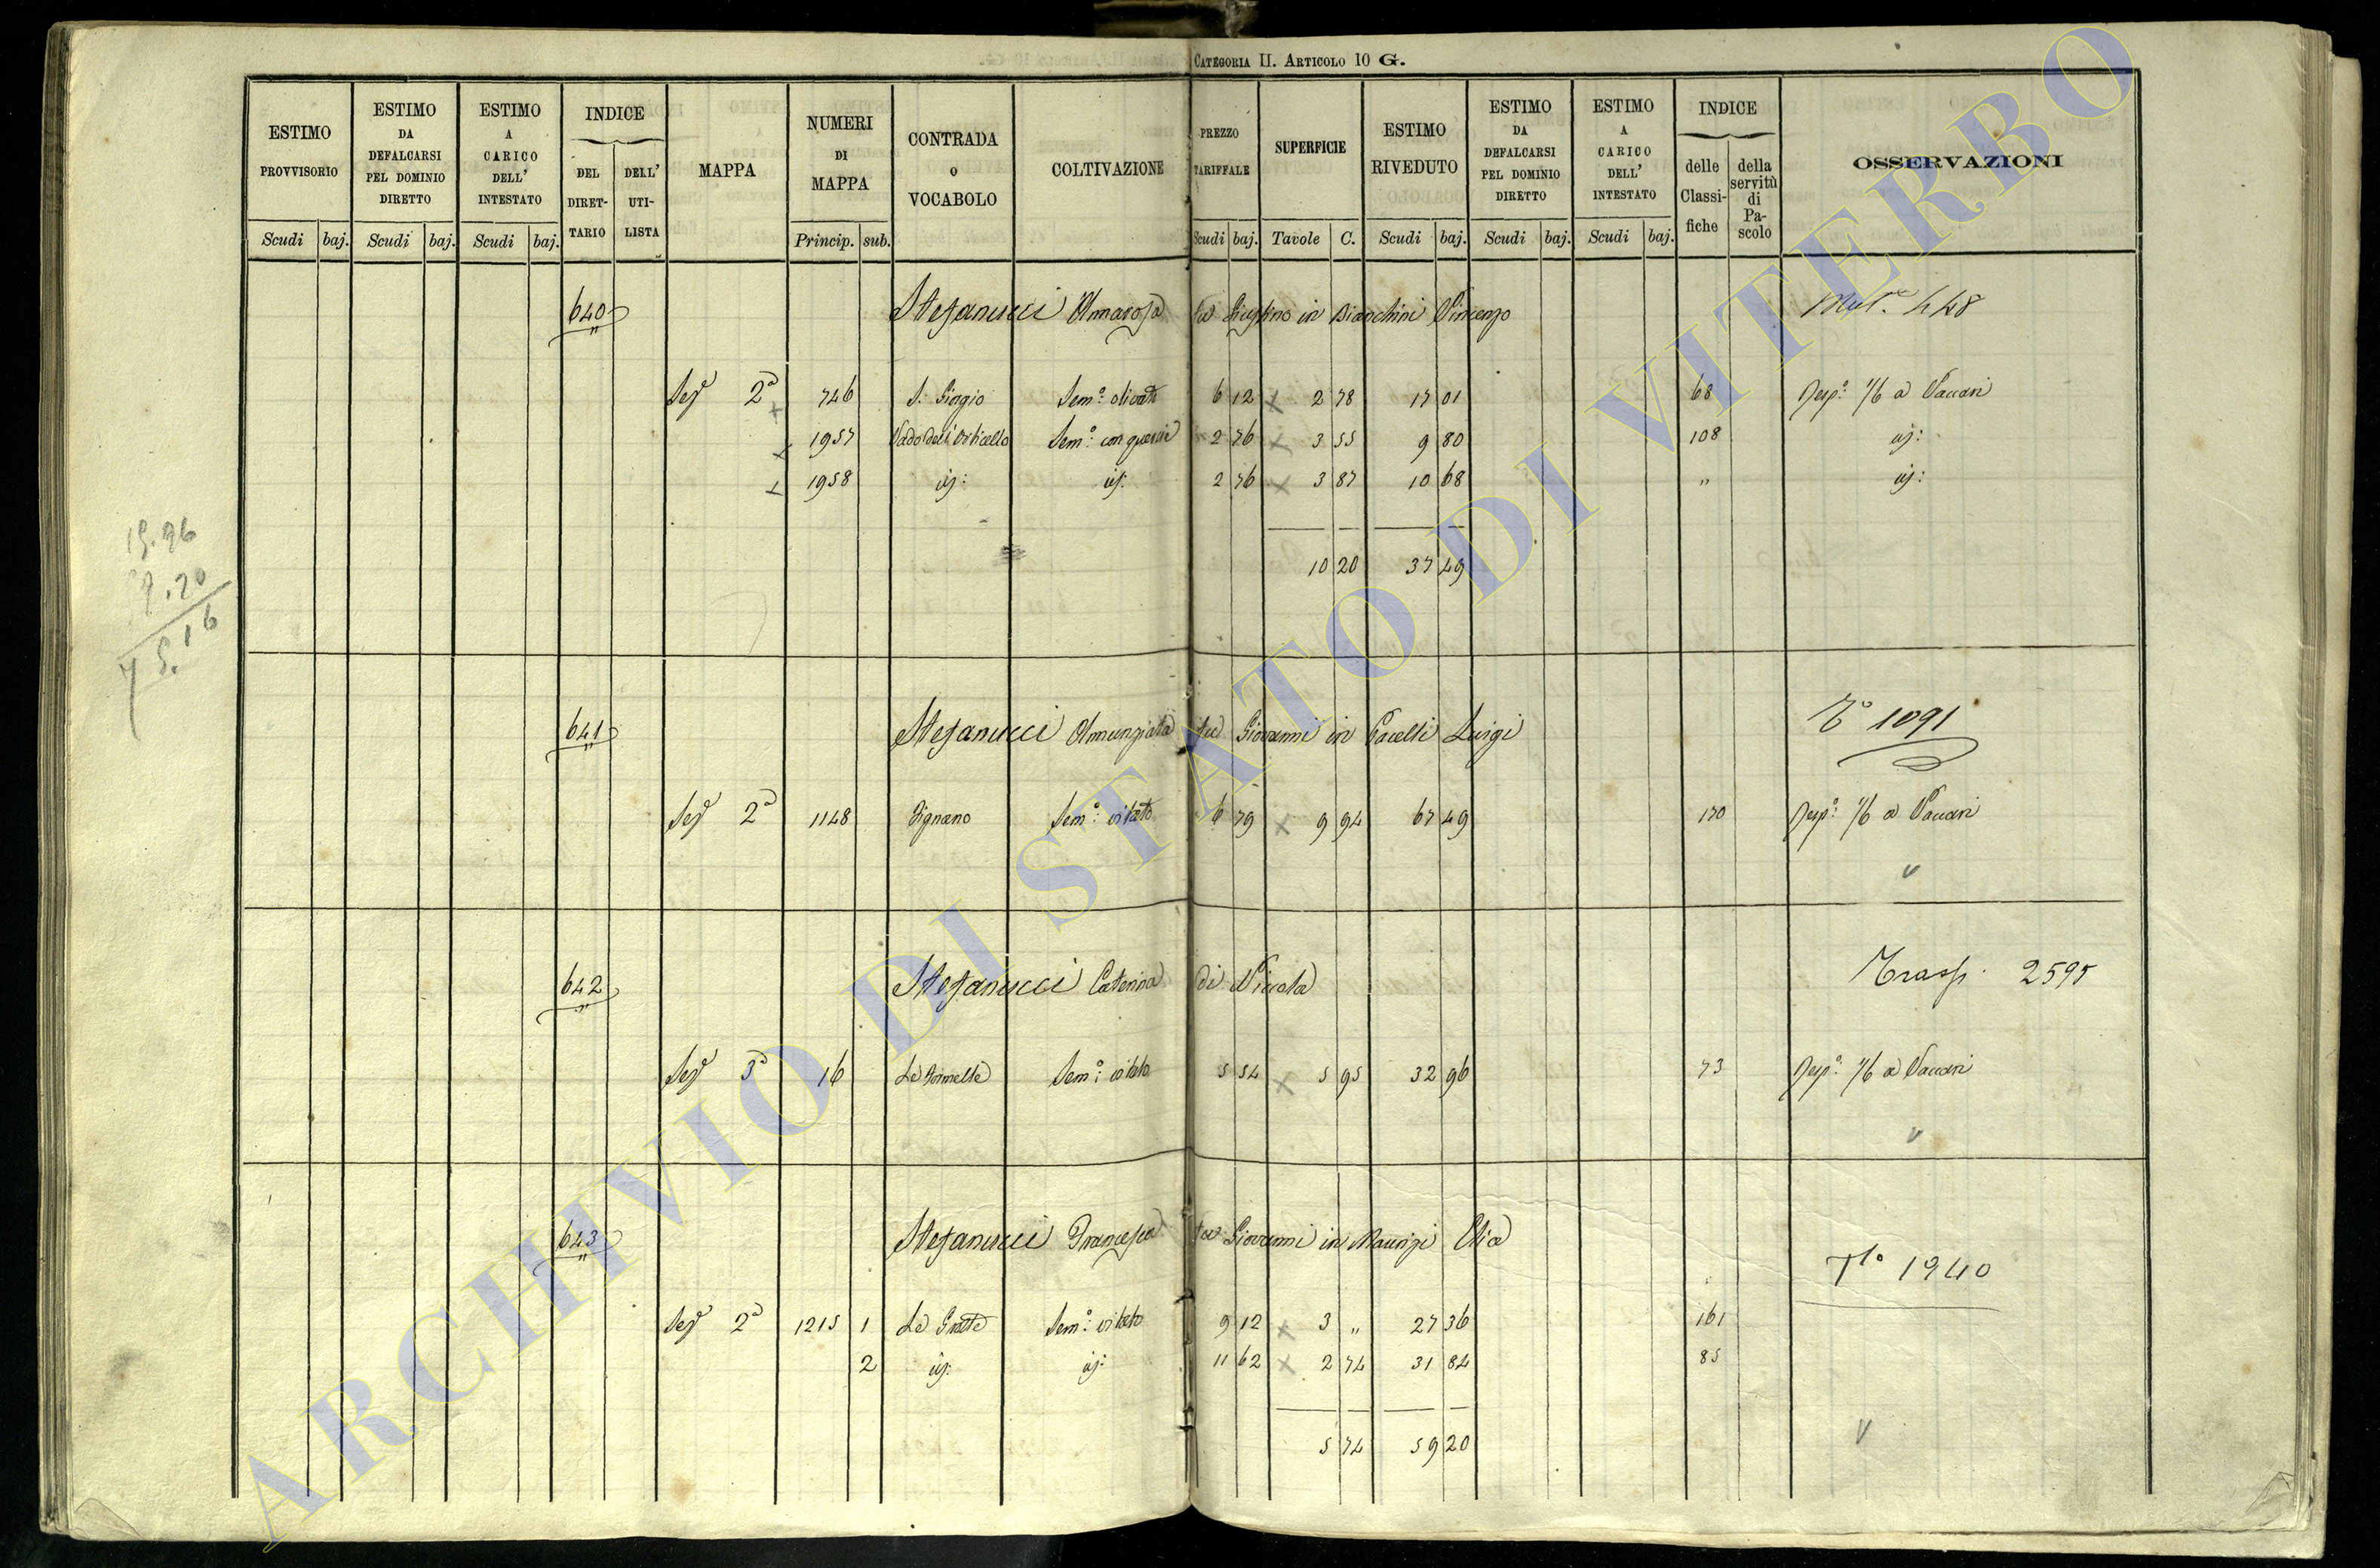 CATEGORIA II. ARTICOLO 10 G.
ESTIMO PROVVISORIO Scudi baj.
ESTIMO DA DEFALCARSI PEL DOMINIO DIRETTO Scudi baj.
ESTIMO A CARICO DELL' INTESTATO Scudi baj.
INDICE DEL DIRETTARIO DELL' UTILISTA
MAPPA
NUMERI DI MAPPA Princip. sub.
CONTRADA o VOCABOLO
COLTIVAZIONE
PREZZO TARIFFALE Scudi baj.
SUPERFICIE Tavole C.
ESTIMO RIVEDUTO Scudi baj.
ESTIMO DA DEFALCARSI PEL DOMINIO DIRETTO Scudi baj.
ESTIMO A CARICO DELL' INTESTATO Scudi baj.
INDICE delle Classifiche della servitù di Pascolo
OSSERVAZIONI
640 Stefanucci Annarosa fu Giustino in Bianchini Vincenzo 448
2ª 746 S. Giorgio Sem.º olivato 6 12 2 78 17 01 68 1/6 a Vaccari
1957 Vado dell' Orticello Sem.º con querce 2 76 3 55 9 80 108
1958 2 76 3 87 10 68 "
10 20 37 49
641 Stefanucci Annunziata fu Giovanni in Pacelli Luigi Tº 1091
2ª 1148 Vignano Sem.º vitato 6 79 9 94 67 49 170 1/6 a Vaccari
642 Stefanucci Caterina di Niccola Trasp. 2595
3ª 16 Sem.º vitato 5 54 5 95 32 96 73 1/6 a Vaccari
643 Stefanucci Francesca fu Giovanni in Maurizi Elia Tº 1940
2ª 1215 1 Le Grotte Sem.º vitato 9 12 3 " 27 36 161
2 11 62 2 74 31 84 85
5 74 59 20
ARCHIVIO DI STATO DI VITERBO